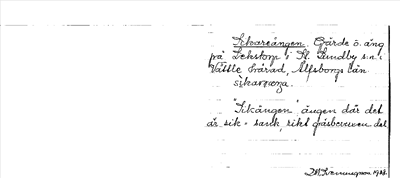 Sikareängen. Gärde o. äng
på Lekstorp i St. Lundby sn. i
Vättle härad, Älfsborgs län
sikaræŋa.
"Sikängen" ängen där det
är sik = sank, rikt gräsbevuxen del
1928.